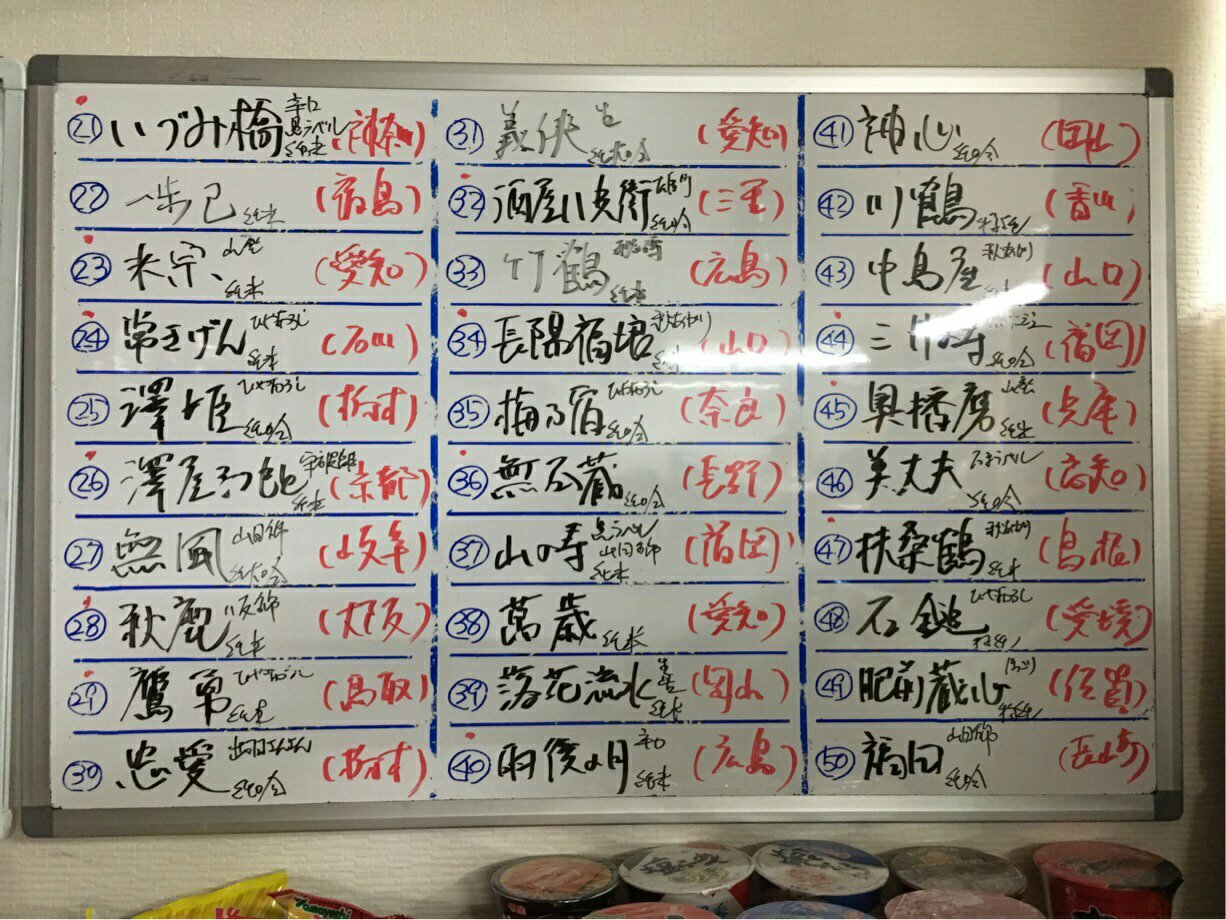 ㉑ いづみ橋 辛口 黒ラベル 純米 (神奈川)
㉒ 一歩己 純米 (福島)
㉓ 米宗 山廃 純米 (愛知)
㉔ 常きげん ひやおろし 純米 (石川)
㉕ 澤姫 ひやおろし 純吟 (栃木)
㉖ 澤屋まつもと 守破離 純米 (京都)
㉗ 無風 山田錦 純吟 (岐阜)
㉘ 秋鹿 純米 (大阪)
㉙ 鷹勇 ひやおろし 純米 (鳥取)
㉚ 忠愛 純吟 (栃木)
㉛ 義侠 生 純吟 (愛知)
㉜ 酒屋八兵衛 純吟 (三重)
㉝ 竹鶴 純米 (広島)
㉞ 長陽福娘 秋あがり 純米 (山口)
㉟ 梅乃宿 ひやおろし 純吟 (奈良)
㊱ 無瓦蔵 純吟 (長野)
㊲ 山の寿 ラベル 山田錦 純米 (福岡)
㊳ 萬歳 純米 (愛知)
㊴ 落花流水 純米 (岡山)
㊵ 雨後の月 辛口 純米 (広島)
㊶ 神心 純吟 (岡山)
㊷ 川鶴 特純 (香川)
㊸ 中島屋 秋あがり 純米 (山口)
㊹ 三井の寿 純吟 (福岡)
㊺ 奥播磨 山廃 純米 (兵庫)
㊻ 美丈夫 純吟 (高知)
㊼ 扶桑鶴 秋あがり 純米 (島根)
㊽ 石鎚 ひやおろし 特純 (愛媛)
㊾ 肥前蔵心 特純 (佐賀)
㊿ 福田 山田錦 純吟 (長崎)